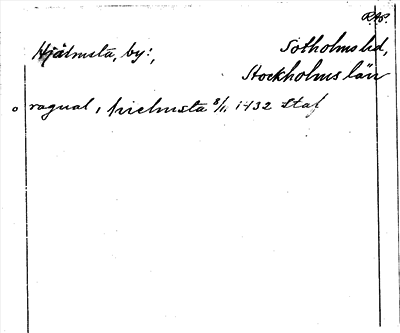 RAP.
Hjälmsta, by:, Sotholms hd,
Stockholms län
o ragual, i hielmsta 8/11 1432 Staf